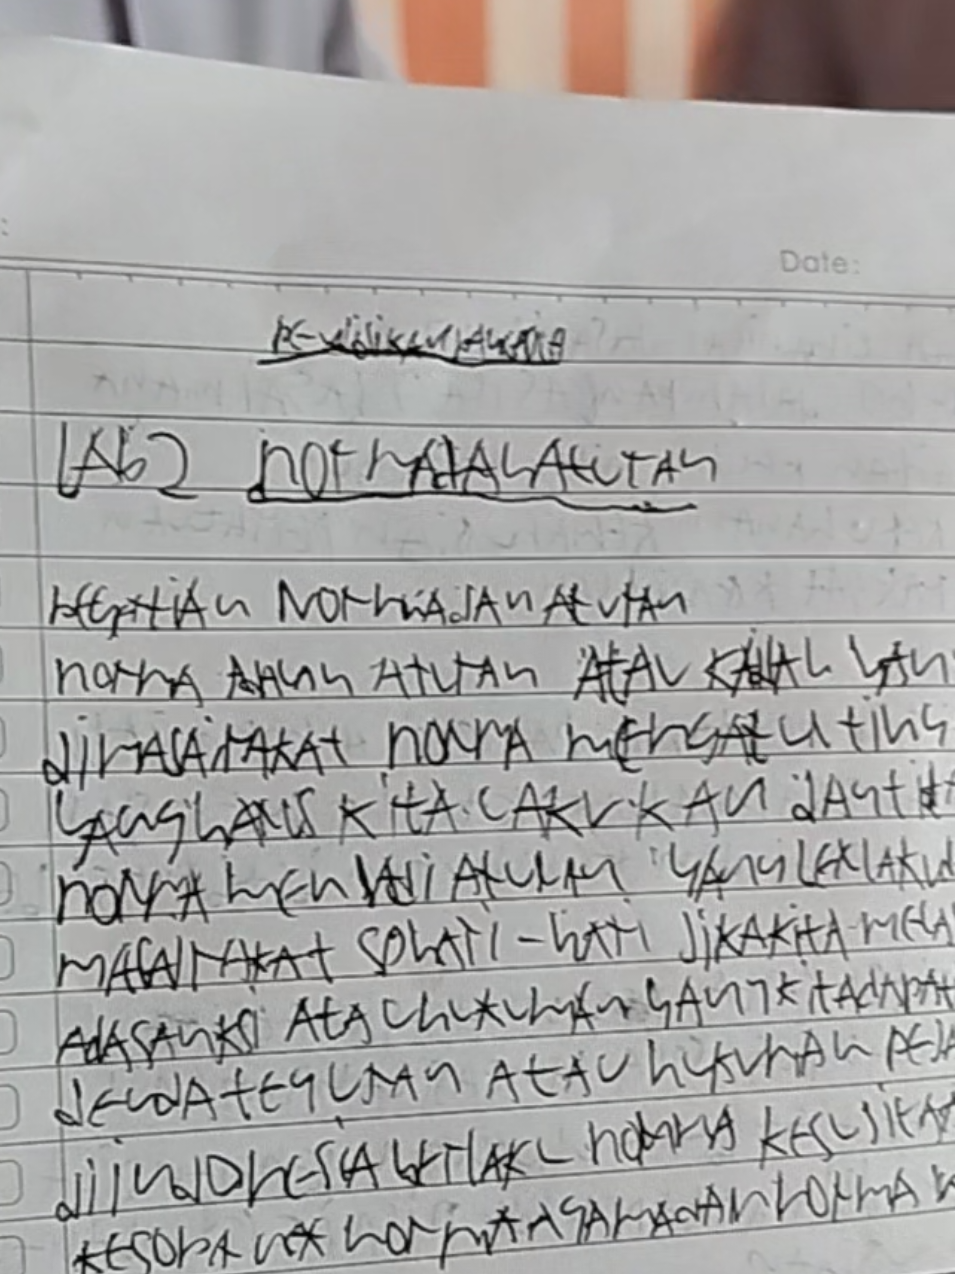 Date:
Pendidikan Pancasila
BAB 2 NORMA DAN ATURAN
PEGRTIAN NORMA DAN ATURAN
NORMA ADALAH ATURAN ATAU KAIDAH YANG
DIMASARAKAT NORMA MENGATUR TING
YANG HARUS KITA LAKUKAN DAN TIDA
NORMA MENJADI ATURAN YANG BERLAKU
MASAIRAKAT SEHARI-HARI JIKA KITA MELA
ADA SANKSI ATAU HUKUMAN YANG KITA DAPAT
DENDA TEGURAN ATAU HUKUMAN PEJA
DI INDONESIA BERLAKU NORMA KESUSILA
KESOPANAN NORMA AGAMA DAN NORMA